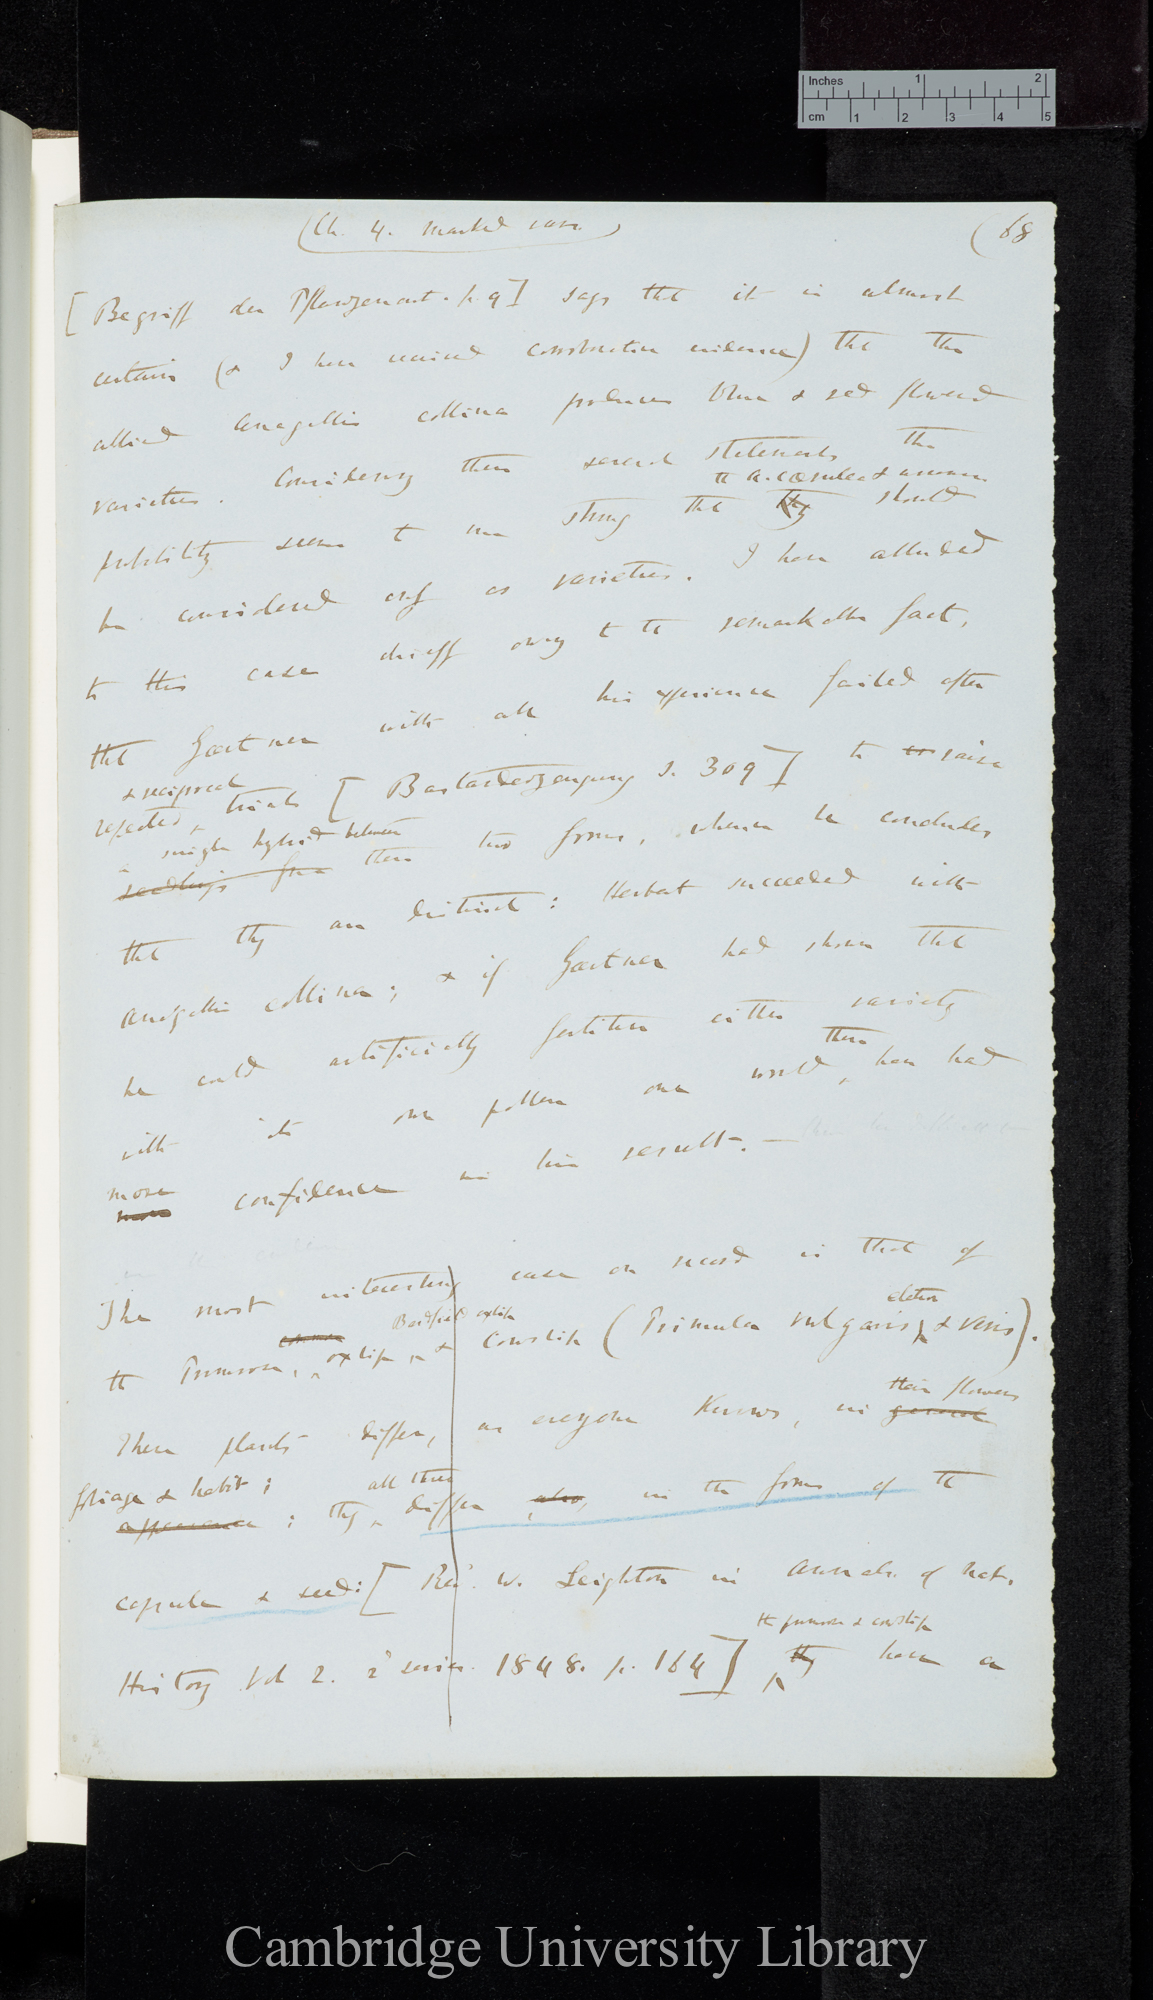 Inches 1 2
cm 1 2 3 4 5
(Ch. 4. marked case.
(68
[Begriff der Pflanzenart. p. 9] says that it is almost
certain (& I have received corroborative evidence) that the
allied Anagallis collina produces blue & red flowered
varieties. Considering these several statements the
the A. coerulea & arvensis
probability seems to me strong that they should
be considered only as varieties. I have alluded
to this case chiefly owing to the remarkable fact,
that Gartner with all his experience failed after
& reciprocal
repeated trials [Bastarderzeugung s. 309] to raise
single hybrid between
seedlings from these two forms, whence he concludes
that they are distinct: Herbert succeeded with
Anagallis collina; & if Gartner had shown that
he could artificially fertilise either variety
then
with its own pollen one would, have had
more
more confidence in his result. —
The most interesting case on record is that of
Bardfield oxlip elatior
the Primrose, common oxlip, & Cowslip (Primula vulgaris, & veris).
their flowers
These plants differ, as everyone knows, in general
foliage & habit; all three
appearance; they differ also, in the form of the
capsule & seed: [Rev. W. Leighton in Annals. of Nat.
the primrose & cowslip
History Vol 2. 2d series. 1848. p. 164] they have a
Cambridge University Library